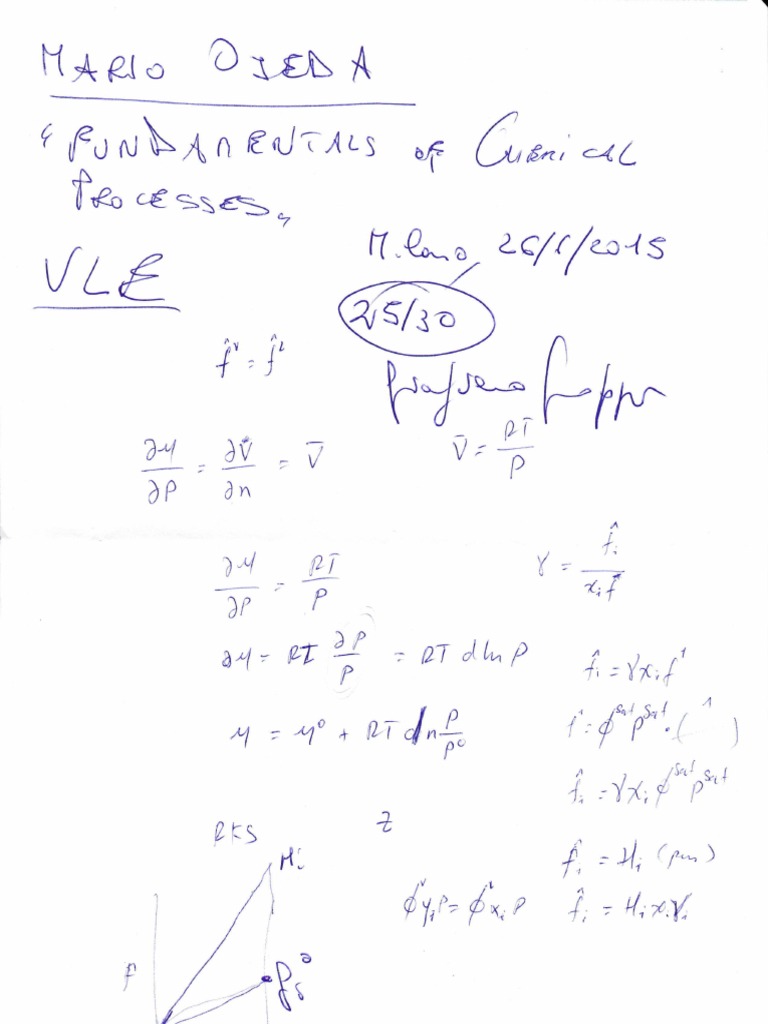 MARIO OJEDA
"FUNDAMENTALS OF CHEMICAL
PROCESSES"
Milano, 26/1/2015
VLE
25/30
f̂ᵛ = f̂ᴸ
∂μ/∂P = ∂V/∂n = V̄
V̄ = RT/P
∂μ/∂P = RT/P
γ = f̂ᵢ/xᵢf
∂μ = RT ∂P/P = RT dlnP
f̂ᵢ = γxᵢf¹
μ = μ⁰ + RT dln P/P⁰
= ϕˢᵃᵗPˢᵃᵗ·( )
f̂ᵢ = γxᵢϕˢᵃᵗPˢᵃᵗ
RKS
Z
Hᵢ
f̂ᵢ = Hᵢ
ϕᵛyᵢP = ϕᴸxᵢP
f̂ᵢ = Hᵢxᵢγᵢ